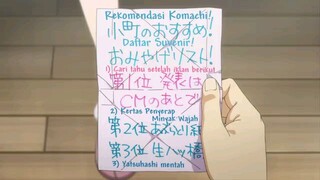 Rekomendasi Komachi!
小町のおすすめ!
Daftar Suvenir!
おみやげリスト!
1) Cari tahu setelah iklan berikut
第1位 発表は
CMのあとで
2) Kertas Penyerap
Minyak Wajah
第2位 あぶらとり紙
第3位 生八ツ橋
3) Yatsuhashi mentah